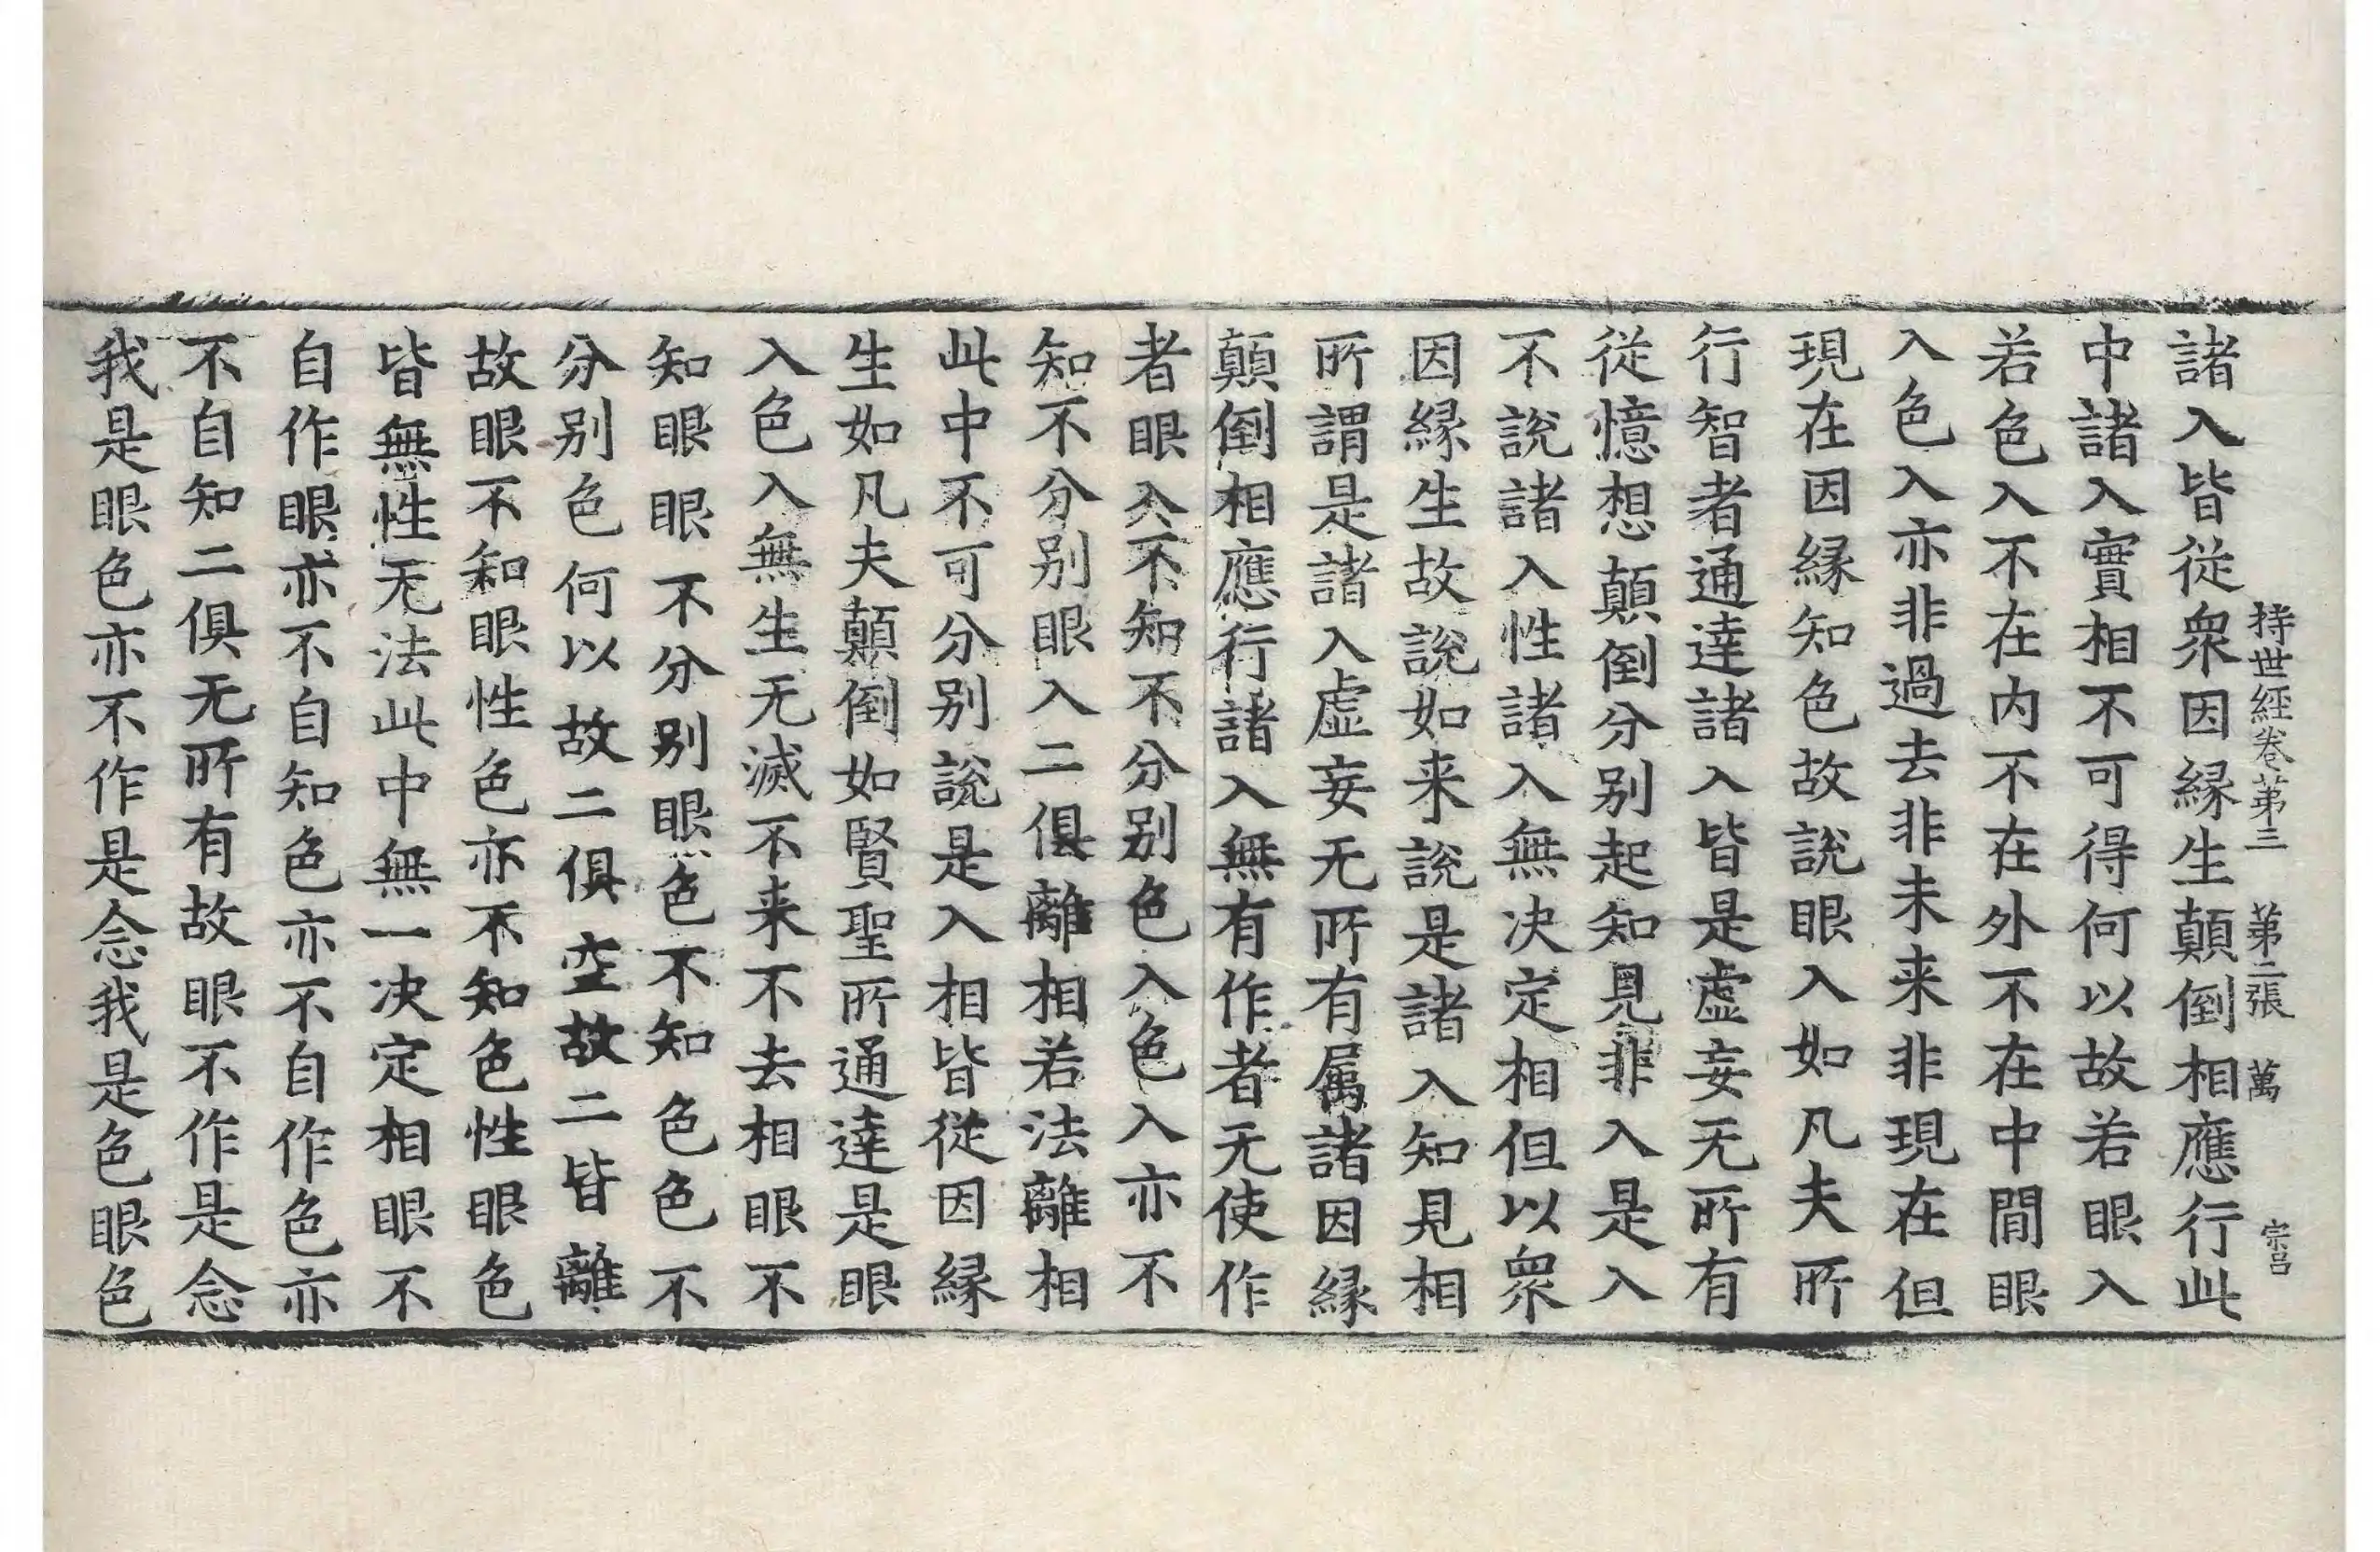 持世経卷第三 第二張 萬 宗呂
諸入皆從衆因縁生顛倒相應行此
中諸入實相不可得何以故若眼入
若色入不在内不在外不在中閒眼
入色入亦非過去非未来非現在但
現在因縁知色故說眼入如凡夫所
行智者通達諸入皆是虚妄无所有
從憶想顛倒分别起知見非入是入
不說諸入性諸入無决定相但以衆
因縁生故說如来說是諸入知見相
所謂是諸入虚妄无所有属諸因縁
顛倒相應行諸入無有作者无使作
者眼入不知不分别色入色入亦不
知不分别眼入二俱離相若法離相
此中不可分别說是入相皆從因縁
生如凡夫顛倒如賢聖所通達是眼
入色入無生无滅不来不去相眼不
知眼眼不分别眼色不知色色不
分别色何以故二俱空故二皆離
故眼不知眼性色亦不知色性眼色
皆無性无法此中無一决定相眼不
自作眼亦不自知色亦不自作色亦
不自知二俱无所有故眼不作是念
我是眼色亦不作是念我是色眼色